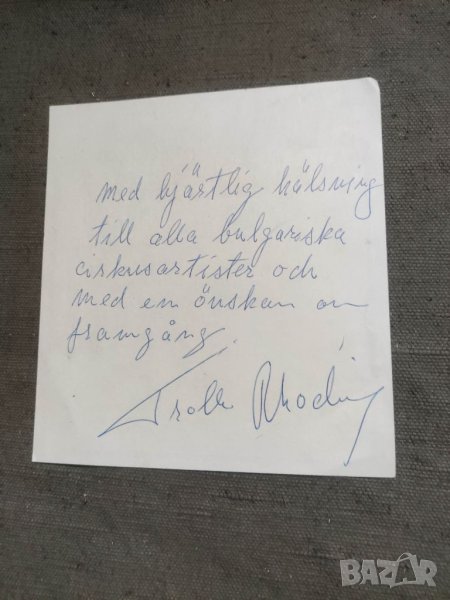 med hjärtlig hälsning
till alla bulgariska
cirkusartister och
med en önskan om
framgång.
Trolle Rhodin
BAZAR